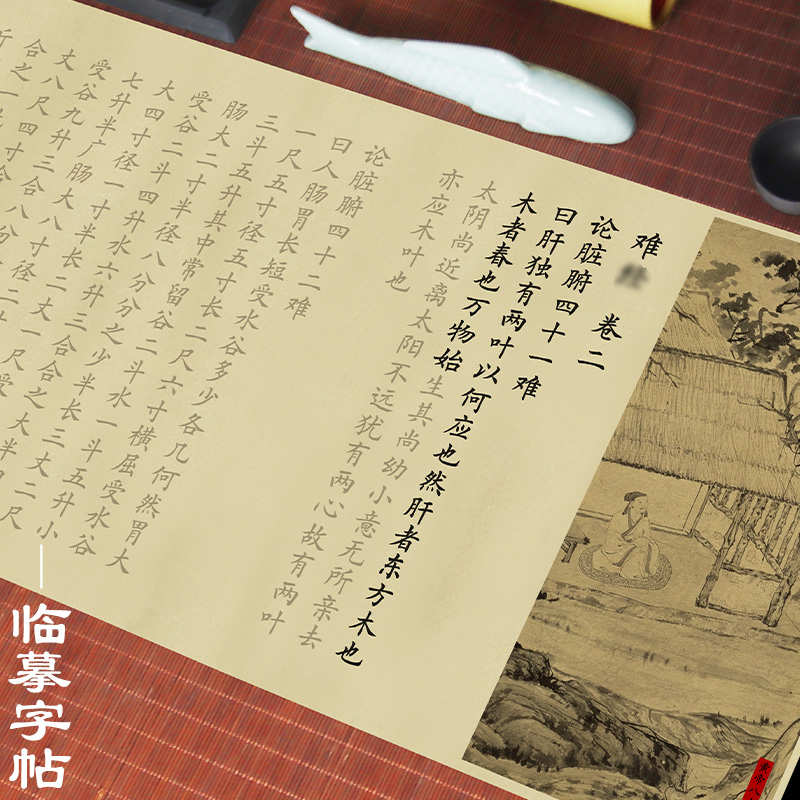 难 卷二
论脏腑四十一难
曰肝独有两叶以何应也然肝者东方木也
木者春也万物始生其尚幼小意无所亲去
太阴尚近离太阳不远犹有两心故有两叶
亦应木叶也
论脏腑四十二难
曰人肠胃长短受水谷多少各几何然胃大
一尺五寸径五寸长二尺六寸横屈受水谷
三斗五升其中常留谷二斗水一斗五升小
肠大二寸半径八分分之少半长三丈二尺
受谷二斗四升水六升三合合之大半
大四寸径一寸半长二丈一尺受
七升半广肠大八寸径二寸
受谷九升三合八分
丈八尺四寸合
合之一
临摹字帖